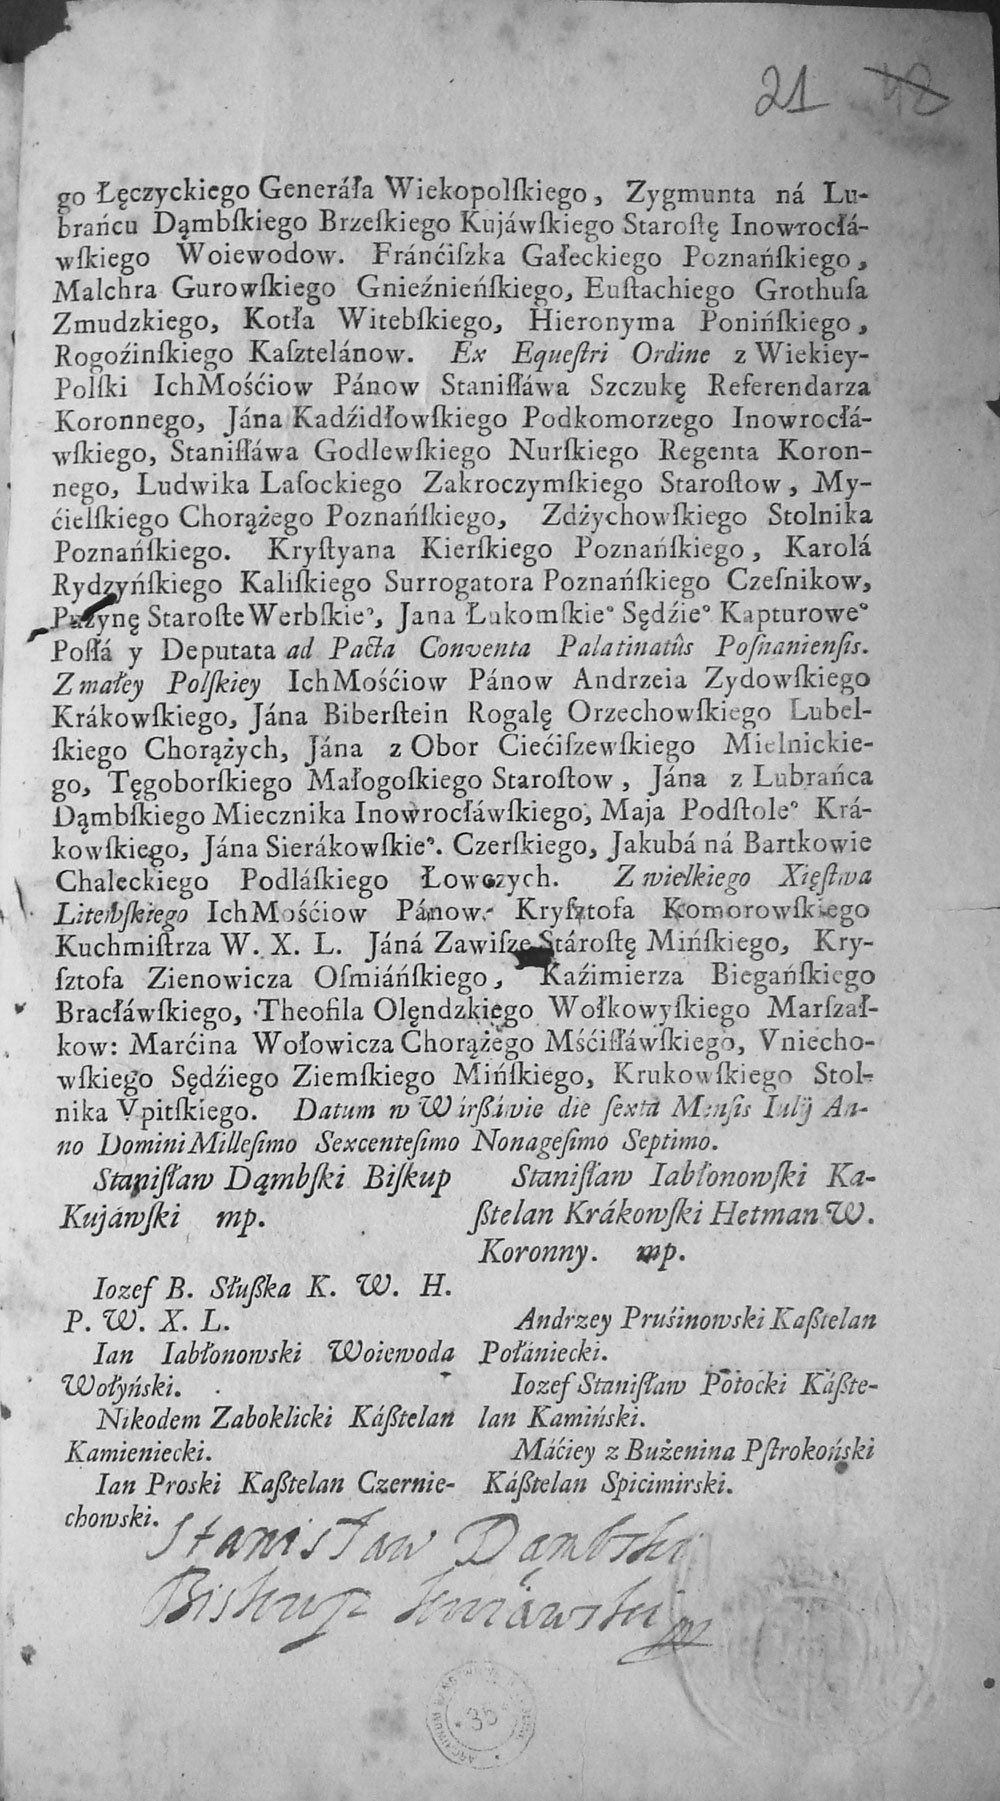 21 48
go Łęczyckiego Generáła Wiekopolſkiego, Zygmunta ná Lu-
brańcu Dąmbſkiego Brzeſkiego Kujáwſkiego Staroſtę Inowrocłá-
wſkiego Woiewodow. Fránćiſzka Gałeckiego Poznańſkiego,
Malchra Gurowſkiego Gnieźnieńſkiego, Euſtachiego Grothuſa
Zmudzkiego, Kotła Witebſkiego, Hieronyma Ponińſkiego,
Rogoźinſkiego Kaſztelánow. Ex Equeſtri Ordine z Wiekiey-
Polſki IchMośćiow Pánow Staniſłáwa Szczukę Referendarza
Koronnego, Jána Kadźidłowſkiego Podkomorzego Inowrocłá-
wſkiego, Staniſłáwa Godlewſkiego Nurſkiego Regenta Koron-
nego, Ludwika Laſockiego Zakroczymſkiego Staroſtow, My-
ćielſkiego Chorążego Poznáńſkiego, Zdżychowſkiego Stolnika
Poznańſkiego. Kryſtyana Kierſkiego Poznańſkiego, Karolá
Rydzyńſkiego Kaliſkiego Surrogatora Poznańſkiego Czeſnikow,
Puzynę Staroſte Werbſkieͦ, Jana Łukomſkieͦ Sędźieͦ Kapturoweͦ
Poſłá y Deputata ad Pacta Conventa Palatinatûs Poſnanienſis.
Z małey Polſkiey IchMośćiow Pánow Andrzeia Zydowſkiego
Krákowſkiego, Jána Biberſtein Rogalę Orzechowſkiego Lubel-
ſkiego Chorążych, Jána z Obor Ciećiſzewſkiego Mielnickie-
go, Tęgoborſkiego Małogoſkiego Staroſtow, Jána z Lubrańca
Dąmbſkiego Miecznika Inowrocłáwſkiego, Maja Podſtoleͦ Krá-
kowſkiego, Jána Sierákowſkieͦ. Czerſkiego, Jakubá ná Bartkowie
Chaleckiego Podláſkiego Łowczych. Z wielkiego Xięſtwa
Litewſkiego IchMośćiow Pánow. Kryſztofa Komorowſkiego
Kuchmiſtrza W. X. L. Jáná Zawiſzę Stároſtę Mińſkiego, Kry-
ſztofa Zienowicza Oſmiáńſkiego, Kaźimierza Biegańſkiego
Bracłáwſkiego, Theofila Olęndzkiego Wołkowyſkiego Marſzał-
kow: Marćina Wołowicza Chorążego Mśćiſłáwſkiego, Vniecho-
wſkiego Sędźiego Ziemſkiego Mińſkiego, Krukowſkiego Stol-
nika Vpitſkiego. Datum w Wárßáwie die ſexta Menſis Iulij An-
no Domini Milleſimo Sexcenteſimo Nonageſimo Septimo.
Staniſław Dąmbſki Biſkup
Kujáwſki mp.
Iozef B. Słußka K. W. H.
P. W. X. L.
Ian Iabłonowski Woiewoda
Wołyńſki.
Nikodem Zaboklicki Káßtelan
Kamieniecki.
Ian Proski Kaßtelan Czernie-
chowski.
Staniſław Iabłonowſki Ka-
ßtelan Krákowſki Hetman W.
Koronny. mp.
Andrzey Pruśinowski Kaßtelan
Połániecki.
Iozef Staniſław Potocki Káßte-
lan Kamińſki.
Máćiey z Bużenina Pſtrokoński
Káßtelan Spicimirski.
Stanisław Dąmbski
Biskup Kuiawski mp
35